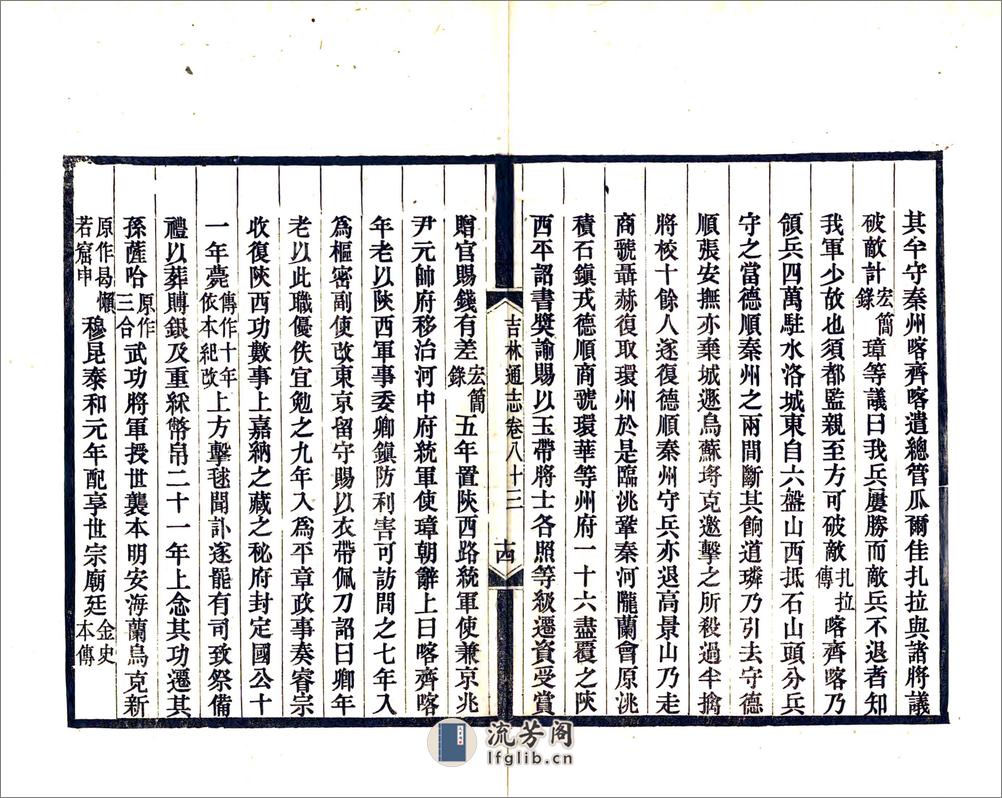 其半守秦州喀齊喀遣總管瓜爾佳扎拉與諸將議
破敵計宏簡錄璋等議曰我兵屢勝而敵兵不退者知
我軍少故也須都監親至方可破敵扎拉傳喀齊喀乃
領兵四萬駐水洛城東自六盤山西抵石山頭分兵
守之當德順秦州之兩間斷其餉道璘乃引去守德
順張安撫亦棄城遯烏蘇埒克邀擊之所殺過半擒
將校十餘人遂復德順秦州守兵亦退高景山乃走
商虢聶赫復取環州於是臨洮鞏秦河隴蘭會原洮
積石鎮戎德順商虢環華等州府一十六盡覆之陜
西平詔書獎諭賜以玉帶將士各照等級遷資受賞
吉林通志卷八十三
十四
贈官賜錢有差宏簡錄五年置陜西路統軍使兼京兆
尹元帥府移治河中府統軍使璋朝辭上曰喀齊喀
年老以陜西軍事委卿鎮防利害可訪問之七年入
為樞密副使改東京留守賜以衣帶佩刀詔曰卿年
老以此職優佚宜勉之九年入為平章政事奏睿宗
收復陜西功數事上嘉納之藏之秘府封定國公十
一年薨傳作十年依本紀改上方擊毬聞訃遂罷有司致祭備
禮以葬賻銀及重綵幣帛二十一年上念其功遷其
孫薩哈原作三合武功將軍授世襲本明安海蘭烏克新
原作曷懶若窟申穆昆泰和元年配享世宗廟廷金史本傳
流芳阁
lfglib.cn